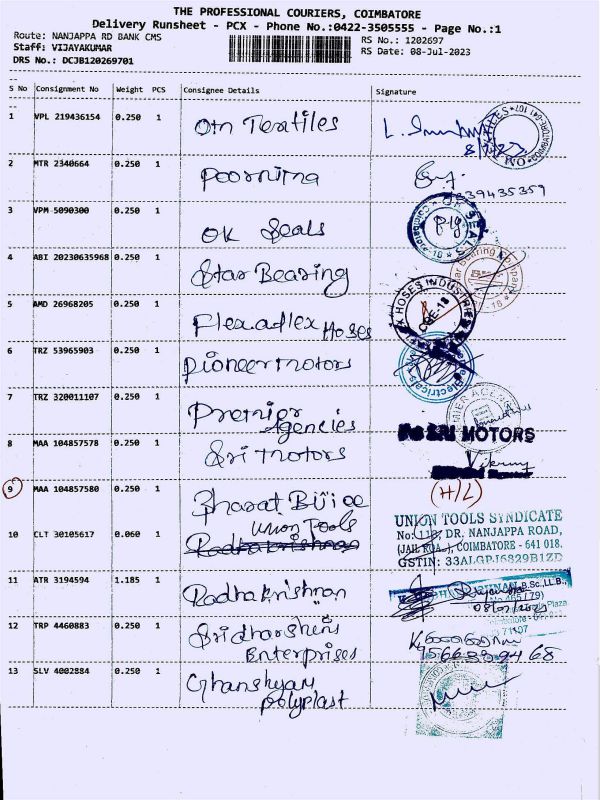 THE PROFESSIONAL COURIERS, COIMBATORE
Delivery Runsheet - PCX - Phone No.:0422-3505555 - Page No.:1
Route: NANJAPPA RD BANK CMS RS No.: 1202697
Staff: VIJAYAKUMAR RS Date: 08-Jul-2023
DRS No.: DCJB120269701
S No Consignment No Weight PCS Consignee Details Signature
1 VPL 219436154 0.250 1 Om Textiles
8/7/23
2 MTR 2340664 0.250 1 Poornima
9339435359
3 VPM 5090300 0.250 1 OK Seals
4 ABI 20230635968 0.250 1 Star Bearing
5 AMD 26968205 0.250 1 Flexaflex Hoses
HOSES INDUSTRIES
CBE-18
6 TRZ 53965903 0.250 1 Pioneer Motors
7 TRZ 320011107 0.250 1 Premier
Agencies
MOTORS
8 MAA 104857578 0.250 1 Sri Motors
9 MAA 104857580 0.250 1 Bharat
(H/L)
10 CLT 30105617 0.060 1 Union Tools
Radhakrishnan
UNION TOOLS SYNDICATE
No: 113, DR. NANJAPPA ROAD,
(JAIL ROA.), COIMBATORE - 641 018.
GSTIN: 33ALGPJ6829B1ZD
11 ATR 3194594 1.185 1 Radhakrishnan
B.Sc.,LL.B.,
Plaza
12 TRP 4460883 0.250 1 Sridharshens
Enterprises
9566399468
13 SLV 4002884 0.250 1 Ghanshyam
polyplast